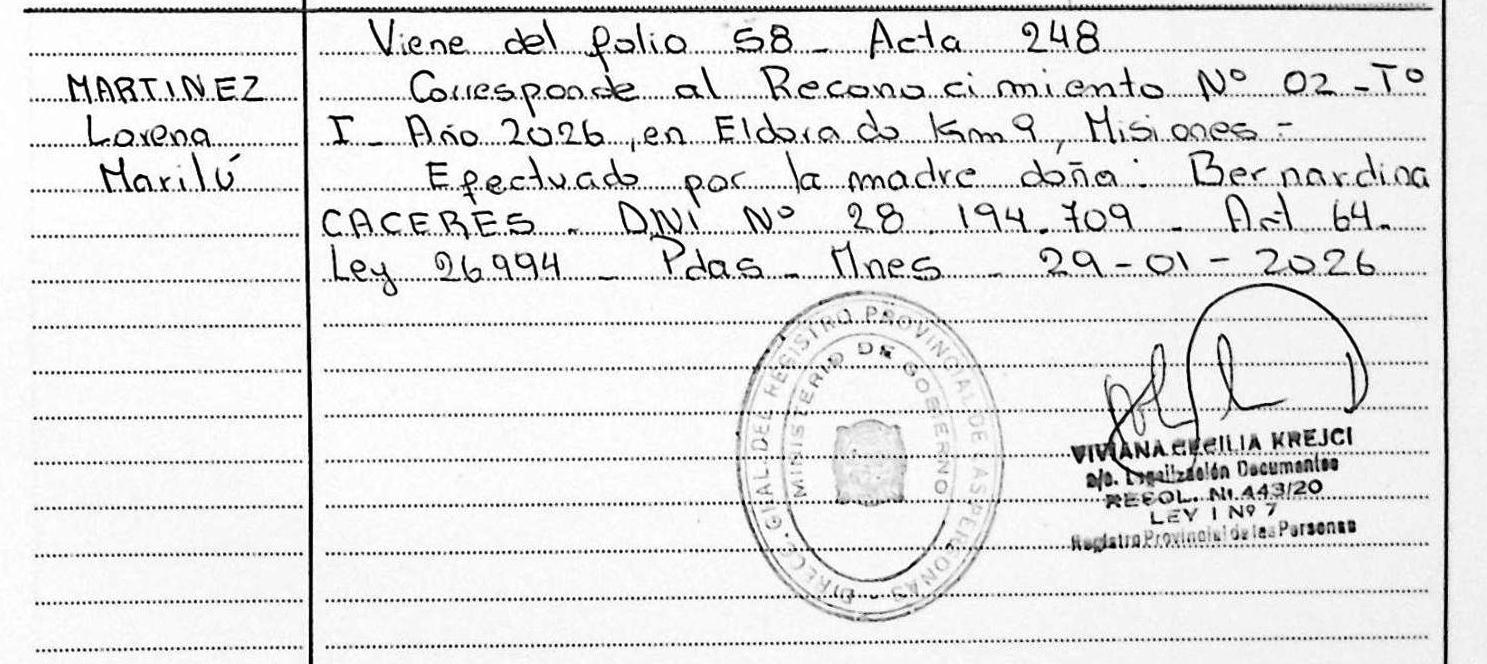 Viene del folio 58 - Acta 248
MARTINEZ
Lorena
Marilú
Corresponde al Reconocimiento Nº 02 - Tº
I - Año 2026, en Eldorado Km 9, Misiones -
Efectuado por la madre doña: Bernardina
CACERES - DNI Nº 28.194.709 - Art 64 -
Ley 26994 - Pdas - Mnes - 29-01-2026
DIRECC. GRAL. DEL REGISTRO PROVINCIAL DE LAS PERSONAS
MINISTERIO DE GOBIERNO
VIVIANA CECILIA KREJCI
a/c. Legalización Documentos
RESOL. Nº 443/20
LEY I Nº 7
Registro Provincial de las Personas